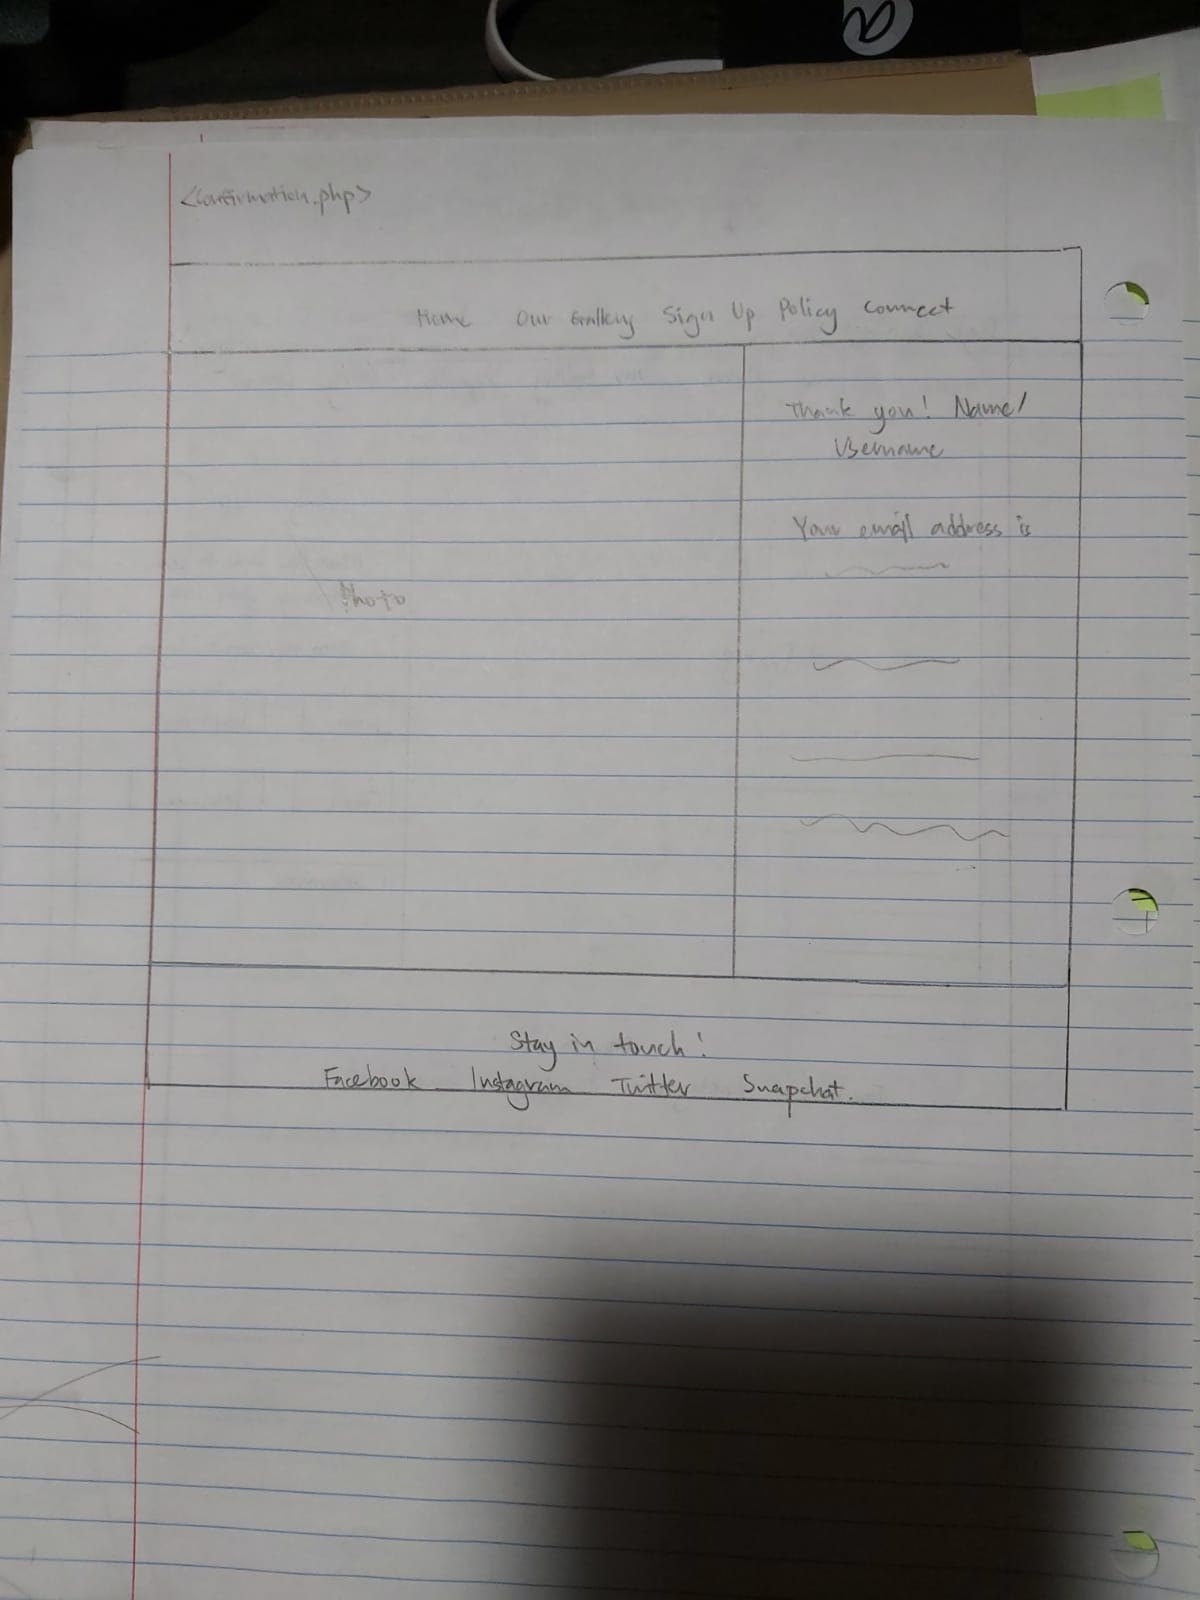 <Confirmation.php>
Home Our Gallery Sign Up Policy Connect
Thank you! Name/
Username
Your email address is
Photo
Stay in touch!
Facebook Instagram Twitter Snapchat.